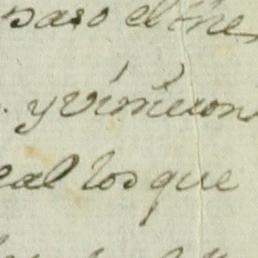 paso el the
y vinieron
eal los que